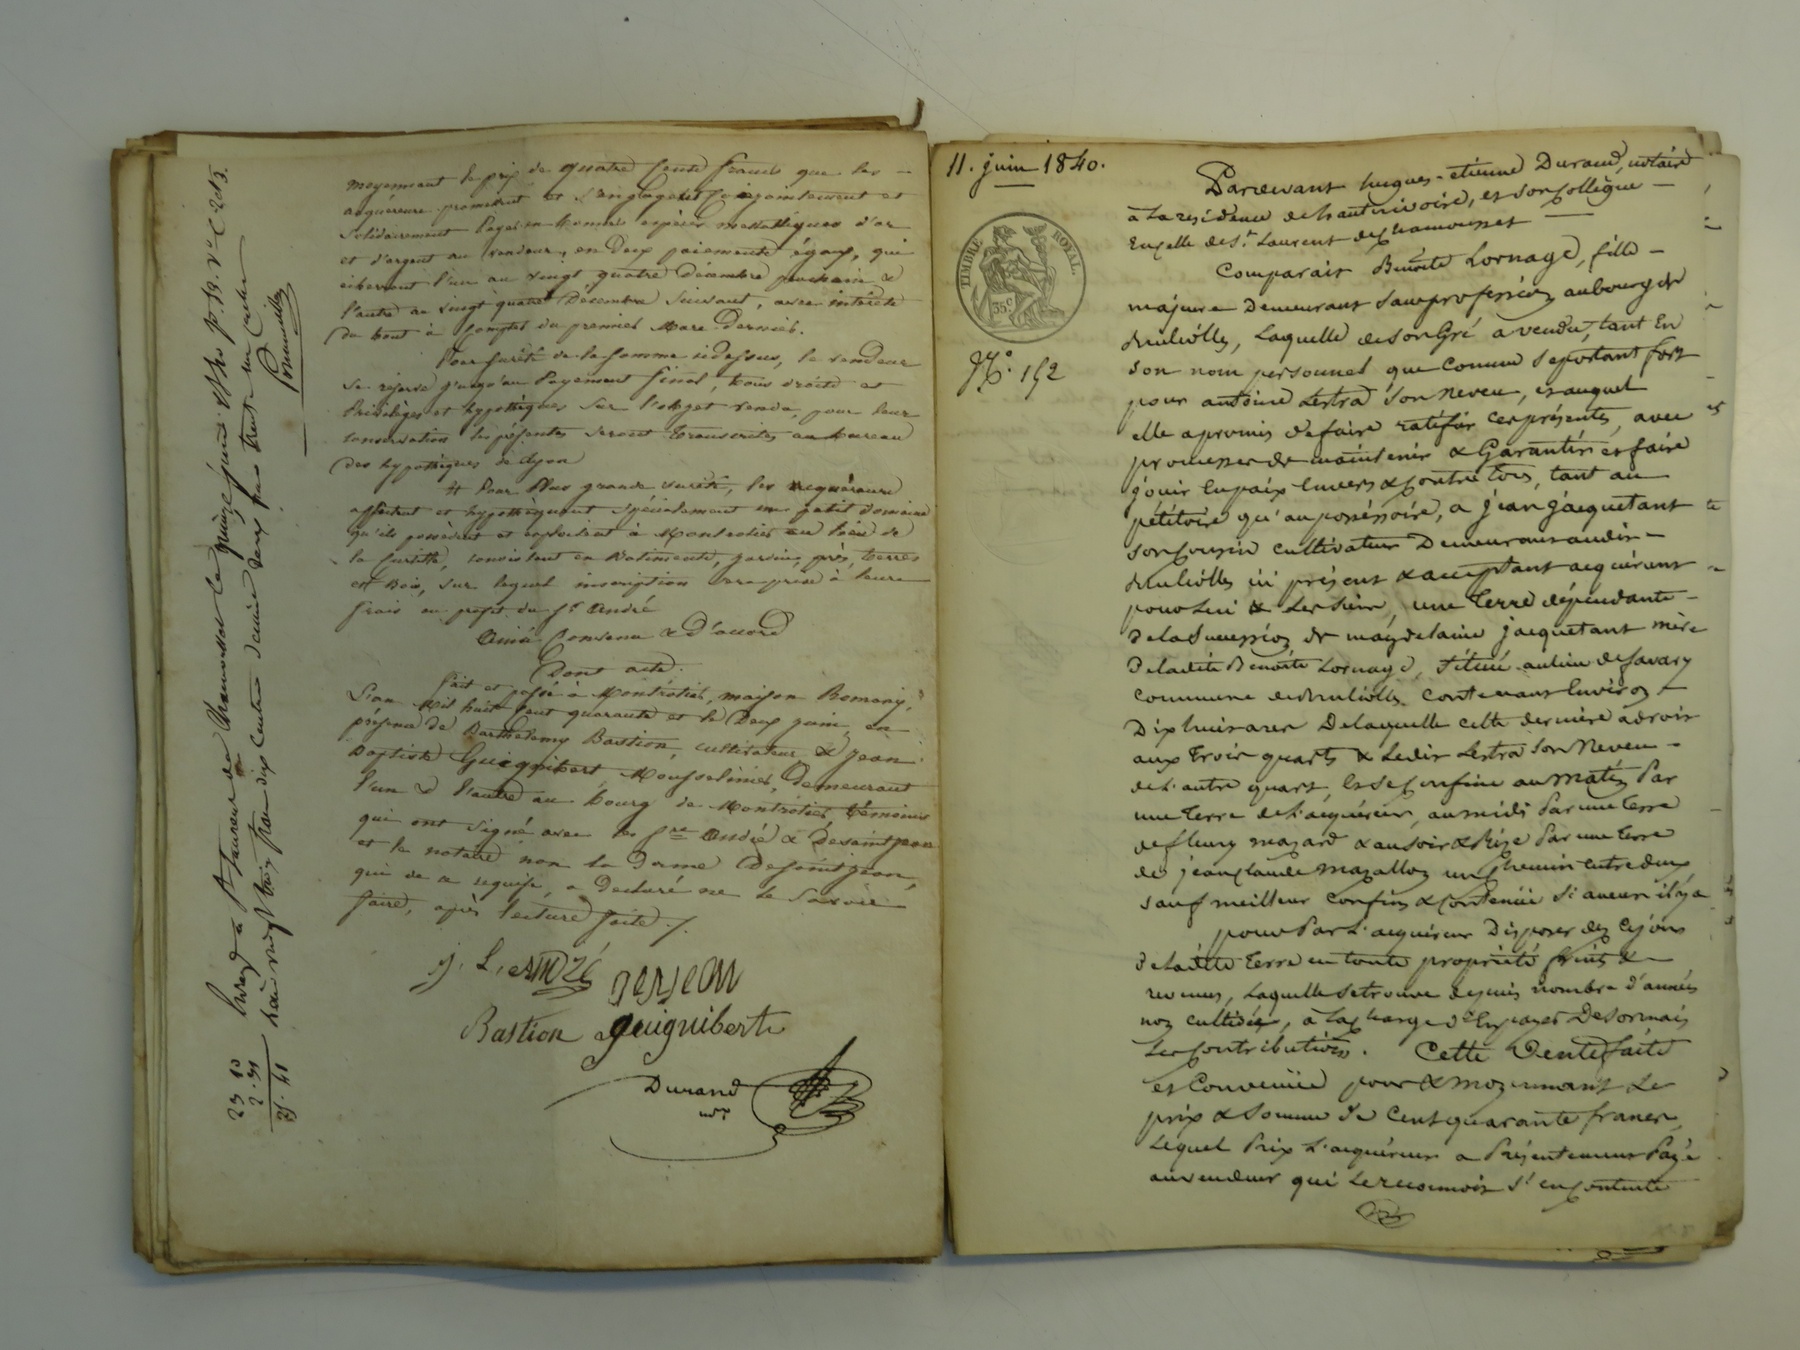 moyennant le prix de quatre cents francs que les
acquéreurs promettent et s'engagent conjointement et
solidairement payer en bonnes espèces métalliques d'or
et d'argent au vendeur, en deux paiements égaux, qui
écherront l'un au vingt quatre Décembre prochain &
l'autre au vingt quatre Décembre suivant, avec intérêts
du tout à compter du premier Mars dernier.
Pour sureté de la somme ci dessus, le vendeur
se réserve jusqu'au payement final, tous droits et
Privilèges et hypothèques sur l'objet vendu, pour leur
conservation les présentes seront transcrites au bureau
des hypothèques de Lyon
Pour Plus grande sureté, les acquéreurs
affectent et hypothèquent spécialement un petit Domaine
qu'ils possèdent et exploitent à Montrotier au lieu de
la consistant en Batiments, jardins, prés, terres
et Bois, sur lequel inscription sera prise à leurs
frais au profit du Sr André
Ainsi Convenu & d'accord
Dont acte.
fait et passé à Montrotier, maison Romany,
L'an Mil huit cent quarante et le Deux juin, en
présence de Barthelemy Bastion, cultivateur & Jean
Baptiste Guignibert, Mousselinier, demeurant
l'un & l'autre au bourg de Montrotier, témoins
qui ont signé avec les Srs André & Desaintjean
et le notaire non la Dame Desaintjean,
qui de ce requise, a déclaré ne le savoir
faire, après lecture faite ./.
j. L. ANDRÉ
Bastion guigniberte
Durand
nore
11. juin 1840.
TIMBRE ROYAL.
35c.
No. 152
Pardevant hugues-étienne Durand, notaire
à la residence de hauterivoire, et son collègue
en celle de St. Laurent de chamousset
Comparait Benoite Lornage, fille
majeure Demeurant sans profession au bourg de
Brulliolles, Laquelle de son Gré a vendu, tant En
son nom personnel que comme se portant fort
pour antoine Lestra son neveu, et auquel
elle a promis de faire ratifier ces présentes, avec
promesse de maintenir & Garantir et faire
jouir En paix Envers & contre tous, tant au
pétitoire qu'au possessoire, a jean jacquetant
son cousin cultivateur Demeurant audit
Brulliolles ici présent & acceptant acquérant
pour Lui & Les siens, une terre dépendante
De la succession de magdelaine jacquetant mère
De ladite Benoite Lornage, située au lieu de Savary
commune de Brulliolles, contenant Environ
Dix huit ares De laquelle cette dernière a droit
aux trois quarts & Ledit Lestra son Neveu
de L'autre quart, Et se confine au matin Par
une terre de L'acquéreur, au midi Par une terre
de fleury mazard & au soir & Bize Par une terre
de jean claude mazallon un chemin entre deux
sauf meilleur confins & contenue si aucun il y a
pour Par L'acquéreur Disposer dez ce jour
de ladite terre en toute propriété fruits &
revenus, Laquelle se trouve depuis nombre d'années
non cultivée, à La charge d'En payer Desormais
Les contributions. Cette Vente faite
et Convenüe pour & moyennant Le
prix & Somme De Cent quarante francs,
Lequel Prix L'acquéreur a Présentement Payé
au vendeur qui Le reconnoit s'en contente